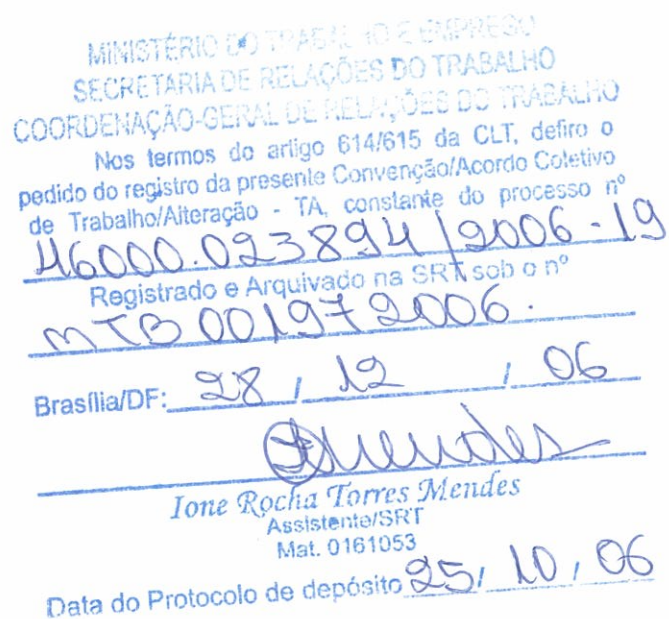 MINISTÉRIO DO TRABALHO E EMPREGO
SECRETARIA DE RELAÇÕES DO TRABALHO
COORDENAÇÃO-GERAL DE RELAÇÕES DO TRABALHO
Nos termos do artigo 614/615 da CLT, defiro o
pedido do registro da presente Convenção/Acordo Coletivo
de Trabalho/Alteração - TA, constante do processo nº
46000.023894/2006-19
Registrado e Arquivado na SRT sob o nº
MTB 001972006.
Brasília/DF: 28 / 12 / 06
Mendes
Ione Rocha Torres Mendes
Assistente/SRT
Mat. 0161053
Data do Protocolo de depósito 25/ 10 / 06